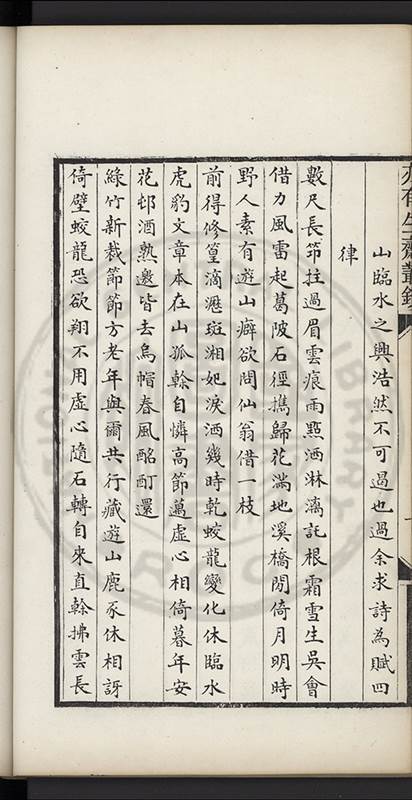 山臨水之興浩然不可遏也過余求詩為賦四
律
數尺長筇拄過眉雲痕雨點洒淋漓託根霜雪生吳會
借力風雷起葛陂石徑攜歸花滿地溪橋閒倚月明時
野人素有遊山癖欲問仙翁借一枝
前得修篁滴瀝斑湘妃淚洒幾時乾蛟龍變化休臨水
虎豹文章本在山孤榦自憐高節邁虛心相倚暮年安
花邨酒熟邀皆去烏帽春風酩酊還
綠竹新裁節節方老年與爾共行藏遊山鹿豕休相訝
倚壁蛟龍恐欲翔不用虛心隨石轉自來直榦拂雲長